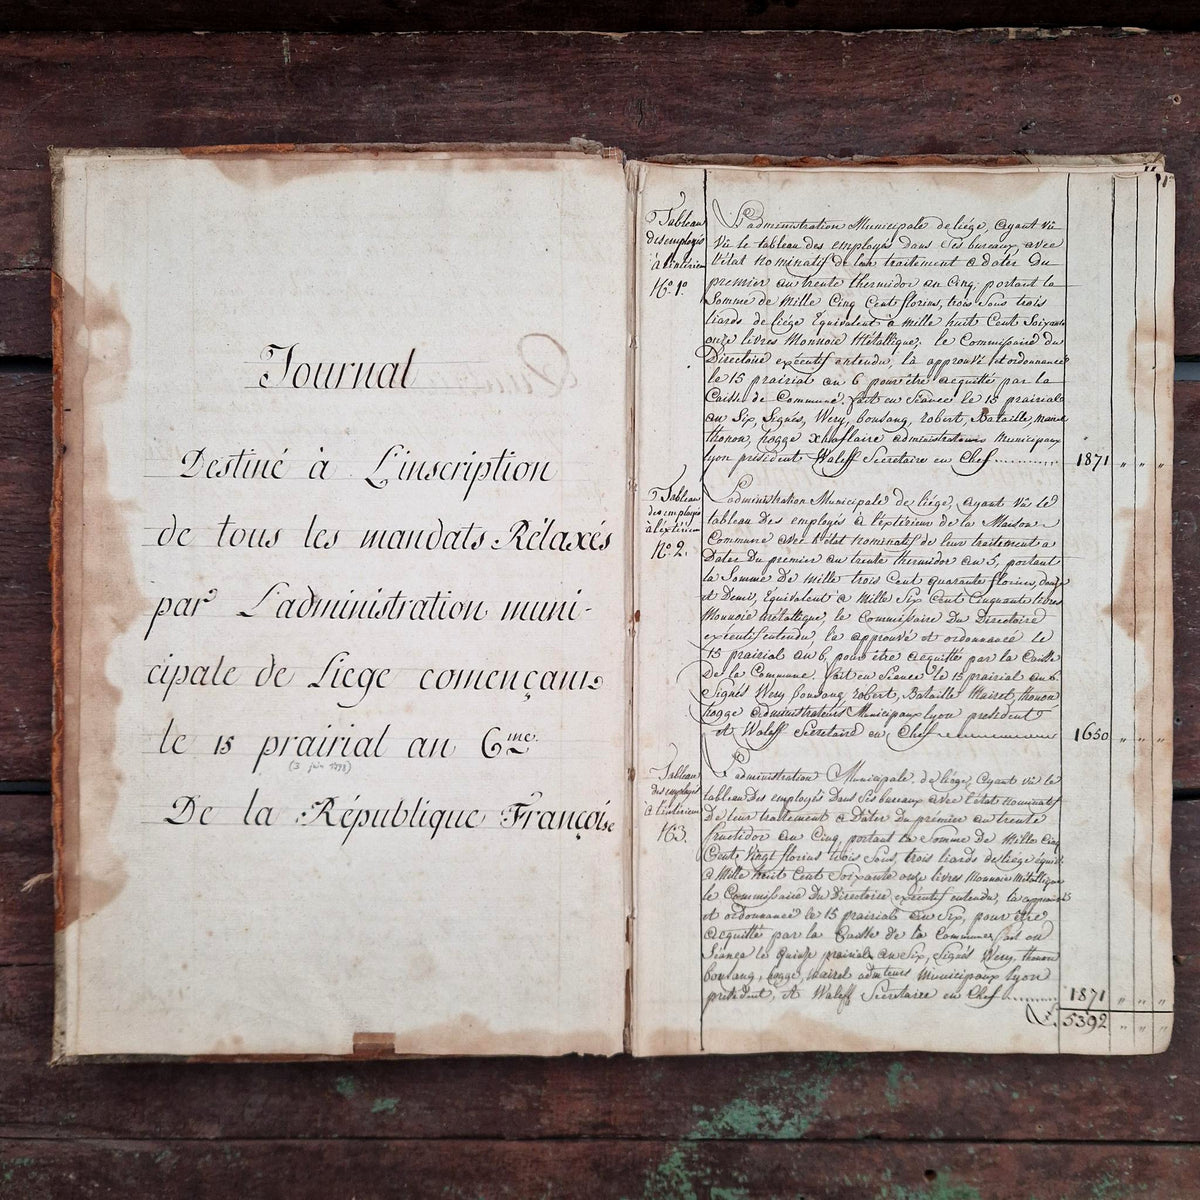 Journal
Destiné à L'inscription
de tous les mandats Rélaxés
par L'administration muni-
cipale de Liege començant
le 15 prairial an 6me.
(3 juin 1798)
De la République Françoise
Tableau
des employés
à l'intérieur
No. 1o.
L'administration Municipale de liége, ayant vû
Vû le tableau des employés Dans Ses bureaux, avec
l'état nominatif de leur traitement a dater du
premier au trente thermidor an Cinq; portant la
Somme de Mille Cinq Cent florins, trois Sous trois
liards de liége Equivalent à mille huit Cent Soixante
onze livres Monnoie Métallique; le Commissaire du
Directoire exécutif entendu, la approuvé et ordonnancé
le 15 prairial an 6 pour être acquitté par la
Caisse de Commune. fait en Séance le 15 prairial
an Six, Signés, Wery, bousang, robert, Bataille,
thonon, hogge xhaflaire administrateurs Municipaux
lyon président Waleff Secretaire en Chef 1871 " " "
Tableau
des employés
à l'extérieur
No. 2.
L'administration Municipale de liége, ayant Vû le
tableau Des employés à l'extérieur de la Maison
Commune avec l'état nominatif de leur traitement a
Dater Du premier au trente thermidor an 5, portant
la Somme De Mille trois Cent quarante florins, deux
et Demi, Equivalent a Mille Six Cent Cinquante livres
Monnoie Métallique, le Commissaire Du Directoire
exécutif entendu, la approuvé et ordonnancé le
15 prairial an 6, pour être acquitté par la Caisse
De la Commune. fait en Séance le 15 prairial an 6
Signés Wery bousang robert, Bataille Mairet, thonon
hogge administrateurs Municipaux lyon president
et Waleff Secretaire en Chef 1650 " " "
Tableau
des employés
à l'intérieur
No 3.
L'administration Municipale de liége, Ayant Vû le
tableau Des employés Dans Ses bureaux avec l'état nominatif
De leur traitement a Dater Du premier au trente
fructidor an Cinq, portant la Somme de Mille Cinq
Cent Vingt florins trois Sous, trois liards de liége équivt.
à Mille huit Cent Soixante onze livres Monnoie Métallique
le Commissaire Du Directoire exécutif entendu, la approuvé
et ordonnancé le 15 prairial an Six, pour être
acquitté par la Caisse de la Commune fait en
Séance le Quinze prairial an Six, Signés Wery, thonon
bousang, hogge, Mairet Municipaux lyon
président, et Waleff Secretaire en Chef 1871 " " "
5392 " " "